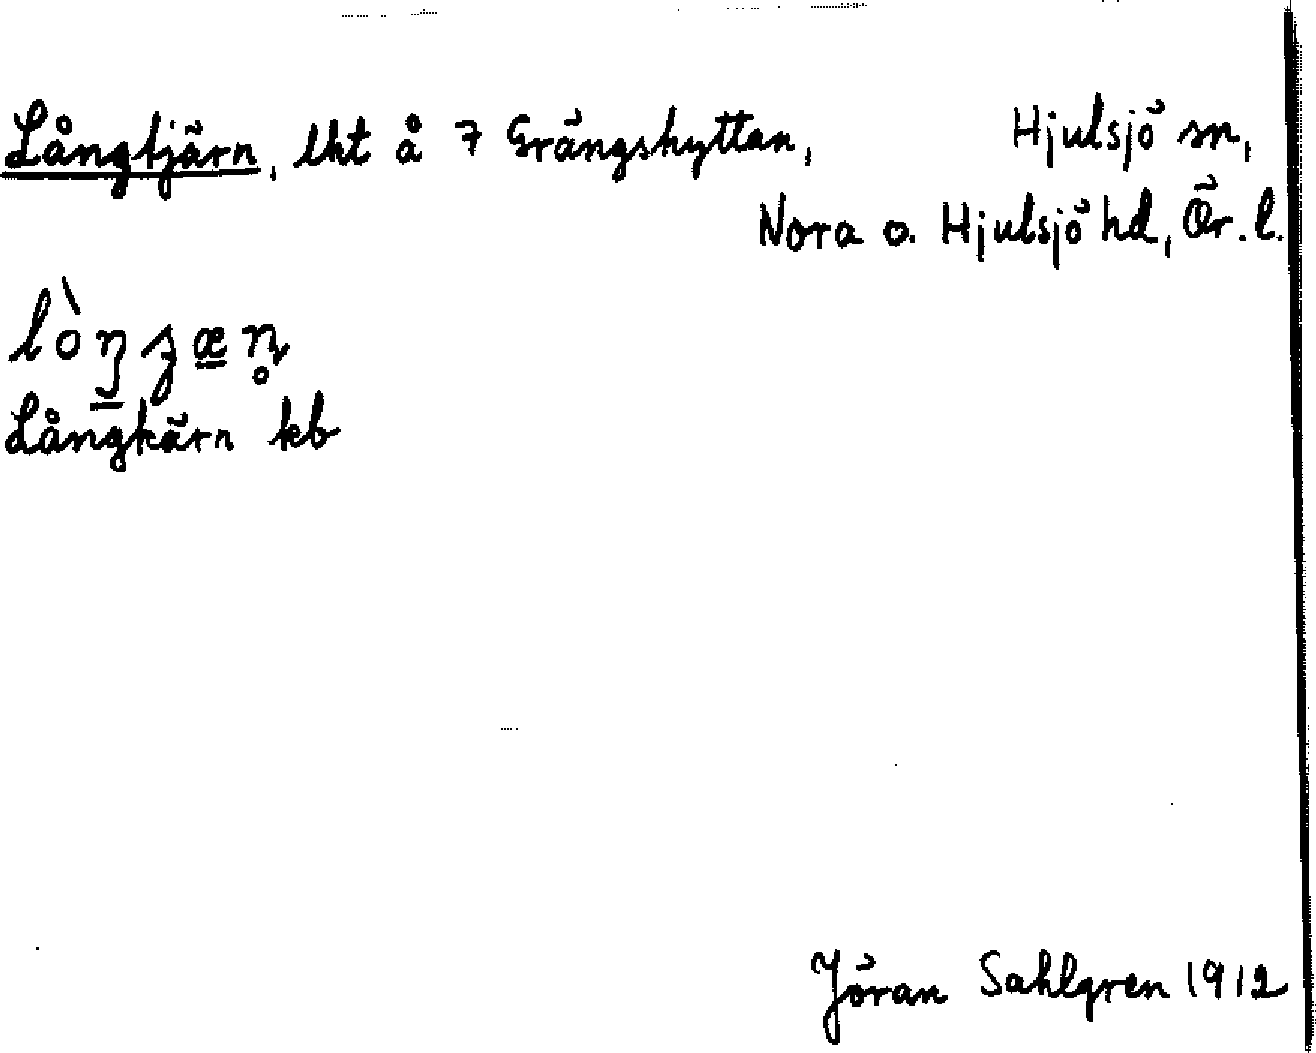 Långtjärn, lht å 7 Grängshyttan, Hjulsjö sn,
Nora o. Hjulsjö hd, Ör. l.
Långkärn kb
Jöran Sahlgren 1912